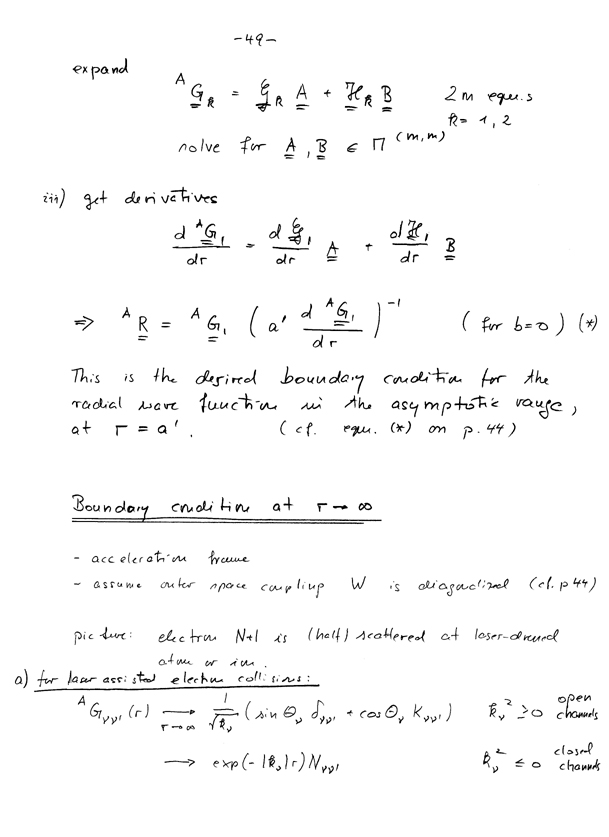 -49-
expand
ᴬG_R = 𝒢_R A + ℋ_R B 2m equ.s
R = 1, 2
solve for A, B ∈ Π^(m,m)
iii) get derivatives
d ᴬG₁/dr = d𝒢₁/dr A + dℋ₁/dr B
⇒ ᴬR = ᴬG₁ (a' d ᴬG₁/dr)⁻¹ (for b=0) (*)
This is the desired boundary condition for the
radial wave function in the asymptotic range,
at r = a'. (cf. equ. (*) on p. 44)
Boundary condition at r → ∞
- acceleration frame
- assume outer space coupling W is diagonalized (cf. p 44)
picture: electron N+1 is (half) scattered at laser-dressed
atom or ion.
a) for laser assisted electron collisions:
ᴬG_νν' (r) → r→∞ 1/√k_ν (sin Θ_ν δ_νν' + cos Θ_ν K_νν') k_ν² ≥ 0 open channels
→ exp(-|k_ν|r) N_νν' k_ν² ≤ 0 closed channels